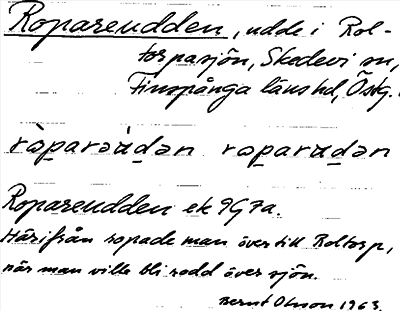 Ropareudden, udde i Rol-
torpasjön, Skedevi sn,
Finspånga läns hd, Östg.
ròparəùdən roparudən
Ropareudden ek 9G7a.
Härifrån ropade man över till Roltorp,
när man ville bli rodd över sjön.
Bernt Olsson 1963.